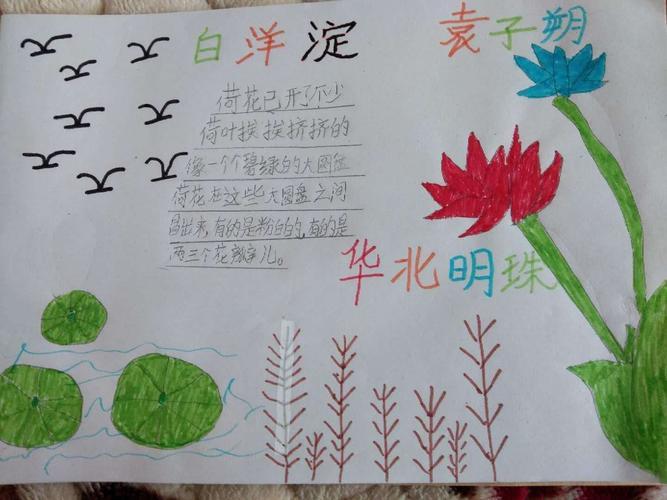 白洋淀
袁子朔
荷花已开了不少
荷叶挨挨挤挤的
像一个个碧绿的大圆盘
荷花在这些大圆盘之间
冒出来,有的是粉白的,有的是
两三个花瓣儿。
华北明珠